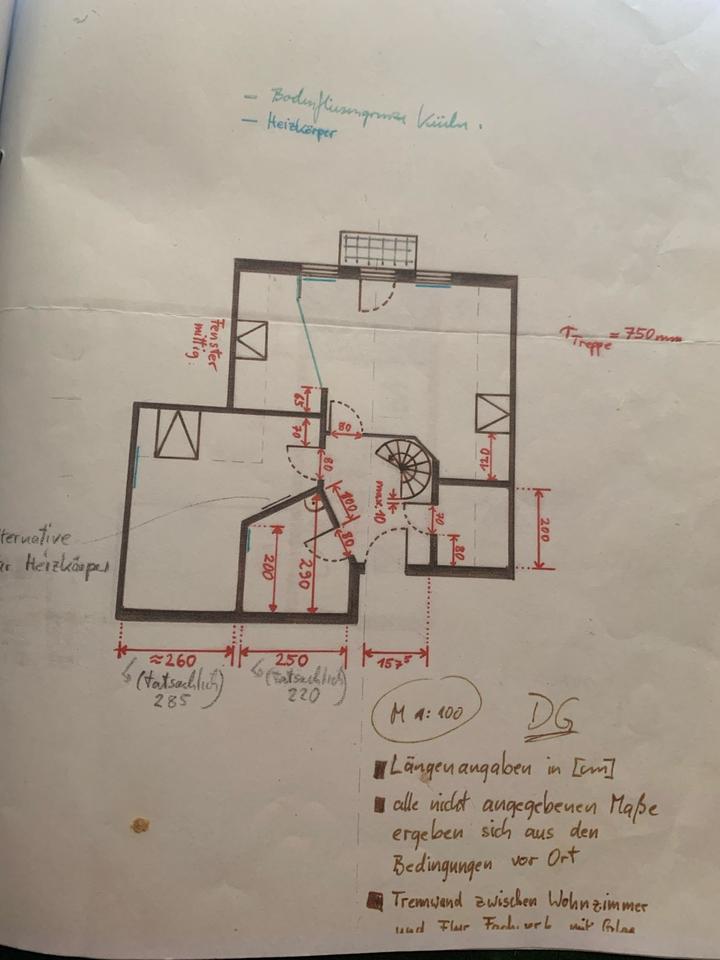 – Bodenfliesengrenze Küche.
– Heizkörper
r Treppe = 750mm
Fenster
mittig!
65
70
80
80
120
100
max. 10
70
80
200
80
200
290
ternative
ür Heizkörper
≈260
250
157⁵
(tatsächlich)
285
(tatsächlich)
220
M 1:100
DG
Längenangaben in [cm]
alle nicht angegebenen Maße
ergeben sich aus den
Bedingungen vor Ort
Trennwand zwischen Wohnzimmer
und Flur Fachwerk mit